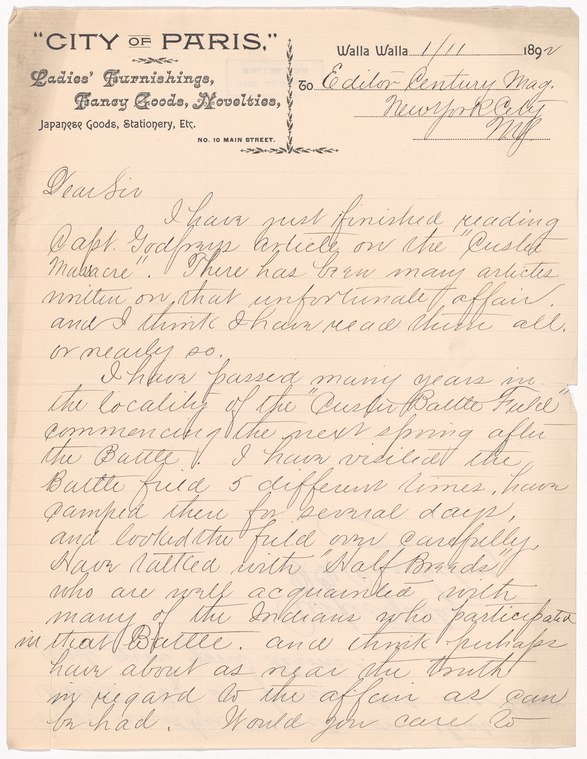 "CITY OF PARIS,"
Ladies' Furnishings,
Fancy Goods, Novelties,
Japanese Goods, Stationery, Etc.
NO. 10 MAIN STREET.
Walla Walla 1/11 1892
To Editor Century Mag.
New York City
NY
Dear Sir
I have just finished reading
Capt. Godfreys article on the "Custer
Massacre". There has been many articles
written on that unfortunate affair.
and I think I have read them all.
or nearly so.
I have passed many years in
the locality of the "Custer Battle Field"
commencing the next spring after
the Battle. I have visited the
Battle field 5 different times, have
camped there for several days,
and looked the field over carefully,
Have talked with "Half Breeds"
who are well acquainted with
many of the Indians who participated
in that Battle. and think perhaps
have about as near the truth
in regard to the affair as can
be had. Would you care to